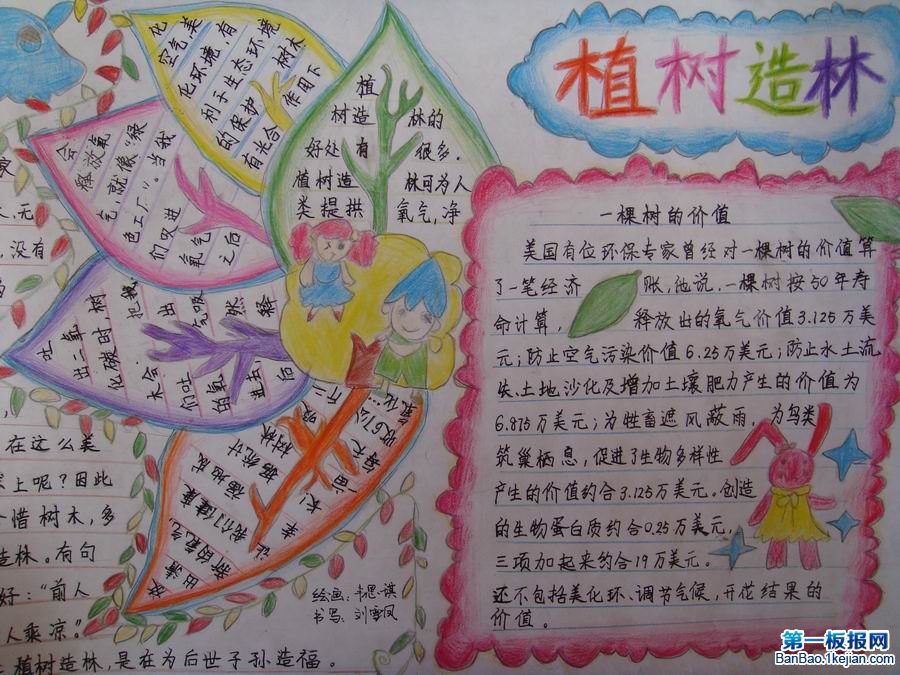 植树造林
植
树造 林的
好处有 很多.
植树造 林可为人
类提拱 氧气,净
化
空气,美
化环境,有
利于生态环境
的保护 树木
有光合 作用下
会
释放氧
气,就像“绿
色工厂”。当我
们吸进 氧气 之后
吐
出二氧
化碳时 树
木会 把我
们吐 出
的氧 气吸
进去 然
后 释
放
出清
新的氧气,
让 我们健康
幸福地成
据统计
树林
每天
无
没有
在这么美
上呢?因此
惜树木,多
造林。有句
好:“前人
人乘凉。”
植树造林,是在为后世子孙造福。
一棵树的价值
美国有位环保专家曾经对一棵树的价值算
了一笔经济 账,他说,一棵树按50年寿
命计算, 释放出的氧气价值3.125万美
元;防止空气污染价值6.25万美元;防止水土流
失、土地沙化及增加土壤肥力产生的价值为
6.875万美元;为牲畜遮风蔽雨,为鸟类
筑巢栖息,促进了生物多样性
产生的价值约合3.125万美元。创造
的生物蛋白质约合0.25万美元,
三项加起来约合19万美元。
还不包括美化环、调节气候,开花结果的
价值。
绘画:
书写:刘雪凤
第一板报网
BanBao.1kejian.com